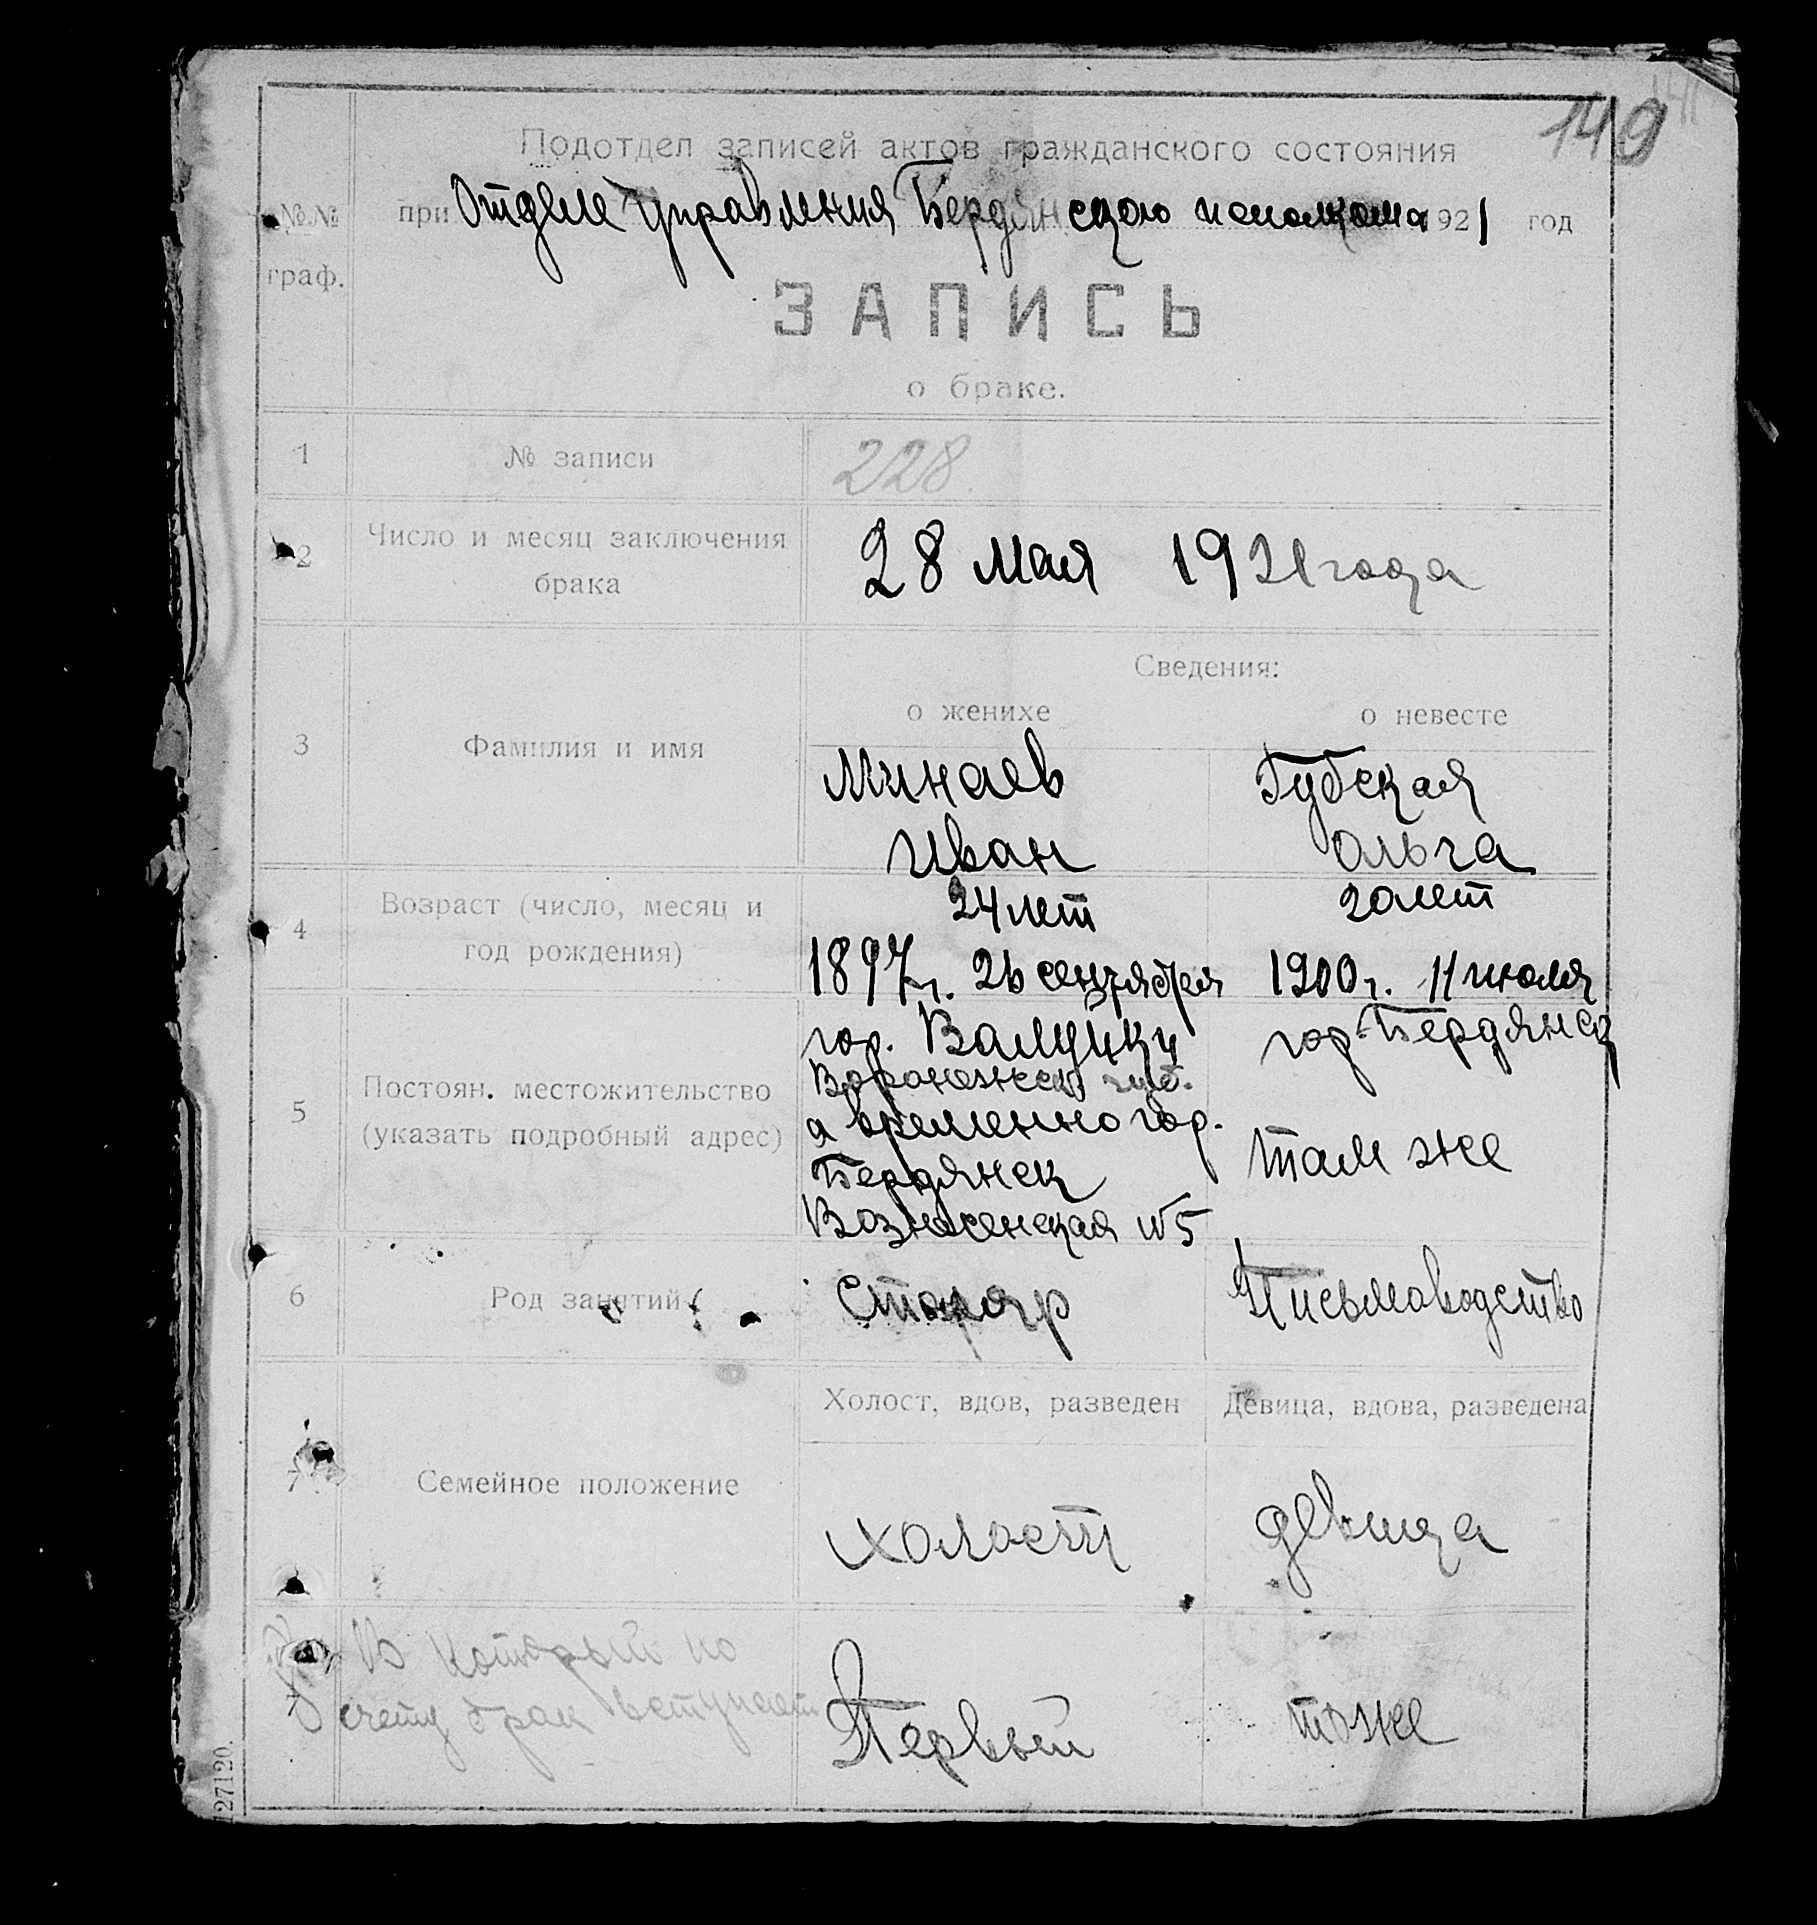 149
Подотдел записей актов гражданского состояния
№№ граф.
при Отделе Управления Бердянского исполкома 1921 год
ЗАПИСЬ
о браке.
1 № записи 228
2 Число и месяц заключения брака 28 мая 1921 года
Сведения:
о женихе о невесте
3 Фамилия и имя
Минаев Губская
Иван Ольга
4 Возраст (число, месяц и год рождения)
24 лет 20 лет
1897 г. 26 сентября 1900 г. 11 июля
5 Постоян. местожительство (указать подробный адрес)
гор. Валуйки гор. Бердянск
Воронежск. губ.
а временно гор. там же
Бердянск
Вознесенская №5
6 Род занятий Столяр Письмоводство
Холост, вдов, разведен Девица, вдова, разведена
7 Семейное положение холост девица
В который по
счету брак вступает Первый тоже
27120.